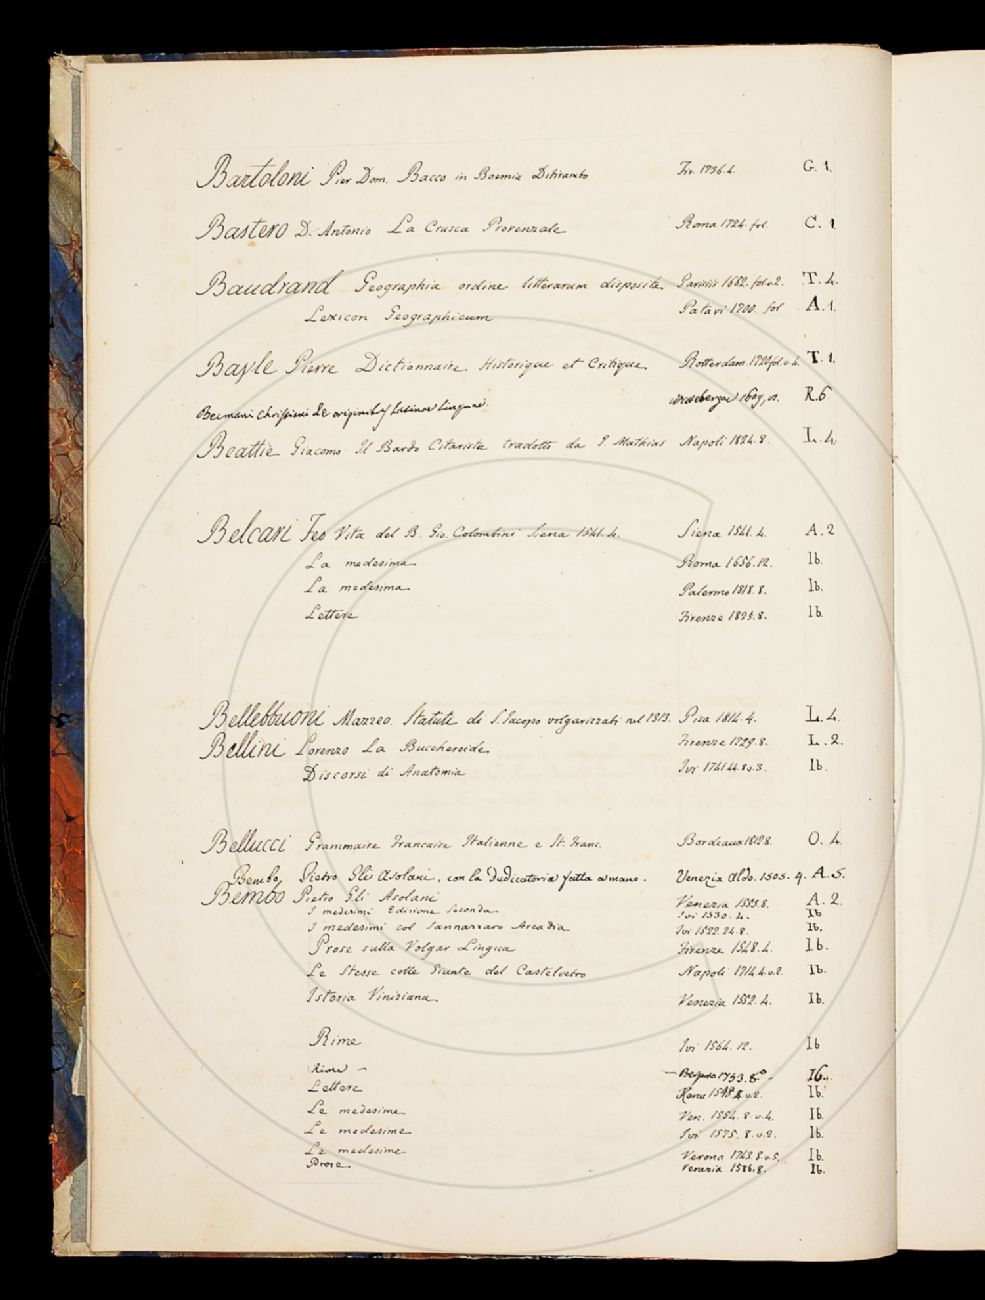 Bartoloni Pier Dom. Bacco in Boemia Ditirambo Fir. 1736. 4. G. 1.
Bastero D. Antonio La Crusca Provenzale Roma 1724. fol. C. 1
Baudrand Geographia ordine litterarum disposita Parisiis 1682. fol. v. 2. T. 4.
Lexicon Geographicum Patavi 1700. fol A. 1.
Bayle Pierre Dictionnaire Historique et Critique Rotterdam. 1720 fol. v. 4. T. 1.
Becmani Christiani de originib. Latinae Linguae 1609, 8. R. 6
Beattie Giacomo Il Bardo Citarista tradotto da T. Mathias Napoli 1824. 8. L. 4.
Belcari Feo Vita del B. Gio. Colombini Siena 1541. 4. Siena 1541. 4. A. 2
La medesima Roma 1656. 12. Ib.
La medesima Palermo 1818. 8. Ib.
Lettere Firenze 1825. 8. Ib.
Bellebuoni Mazzeo Statuti di S. Jacopo volgarizzati nel 1313. Pisa 1814. 4. L. 4.
Bellini Lorenzo La Bucchereide Firenze 1729. 8. L. 2.
Discorsi di Anatomia Ivi 1741 44. 8. v. 3. Ib.
Bellucci Grammaire Francaise Italienne e It. Franc. Bordeaux 1812 8. O. 4.
Bembo, Pietro Gli Asolani, con la Dedicatoria fatta a mano. Venezia Aldo. 1505. 4. A. 5.
Bembo Pietro Gli Asolani Venezia 1553. 8. A. 2.
I medesimi Edizione Seconda Ivi 1530. 4. Ib
I medesimi col Sannazzaro Arcadia Ivi 1522. 24. 8. Ib.
Prose sulla Volgar Lingua Firenze 1548. 4. Ib.
Le Stesse colle Giunte del Castelvetro Napoli 1714 4. v. 2. Ib.
Istoria Viniziana Venezia 1552. 4. Ib.
Rime Ivi 1564. 12. Ib
Rime – – 1753. 8.° – Ib.
Lettere Roma 1548. 8. v. 2. Ib.
Le medesime Ven. 1554. 8. v. 4. Ib.
Le medesime Ivi 1575. 8. v. 2. Ib.
Le medesime Verona 1743. 8. v. 5. Ib.
Prose Venezia 1586. 8. Ib.